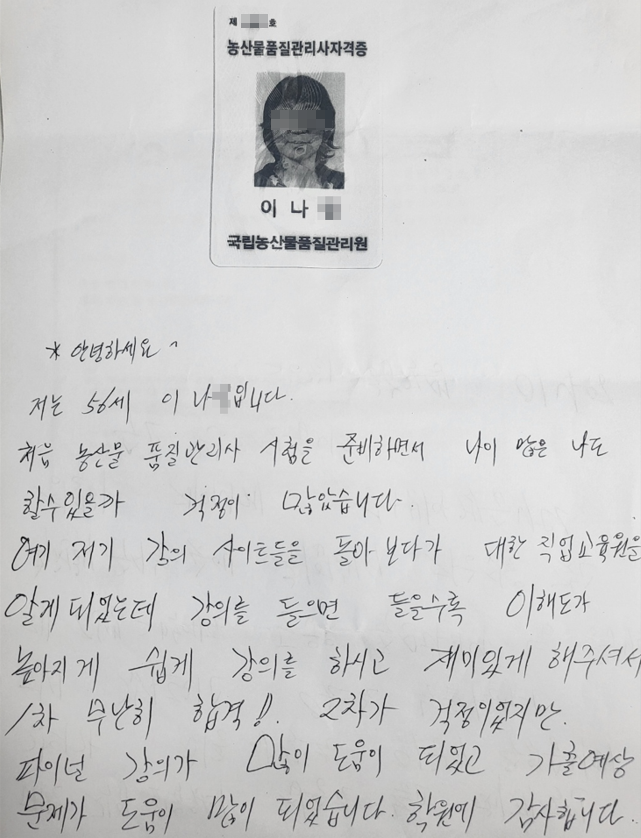 제 호
농산물품질관리사자격증
이 나
국립농산물품질관리원
* 안녕하세요 ^
저는 56세 이 나 입니다.
처음 농산물 품질관리사 시험을 준비하면서 나이 많은 나도
할수있을까 걱정이 많았습니다.
여기 저기 강의 사이트들을 돌아 보다가 대한 직업교육원을
알게 되었는데 강의를 들으면 들을수록 이해도가
높아지게 쉽게 강의를 하시고 재미있게 해주셔서
1차 무난히 합격!! 2차가 걱정이었지만.
파이널 강의가 많이 도움이 되었고 기출예상
문제가 도움이 많이 되었습니다. 학원에 감사합니다.